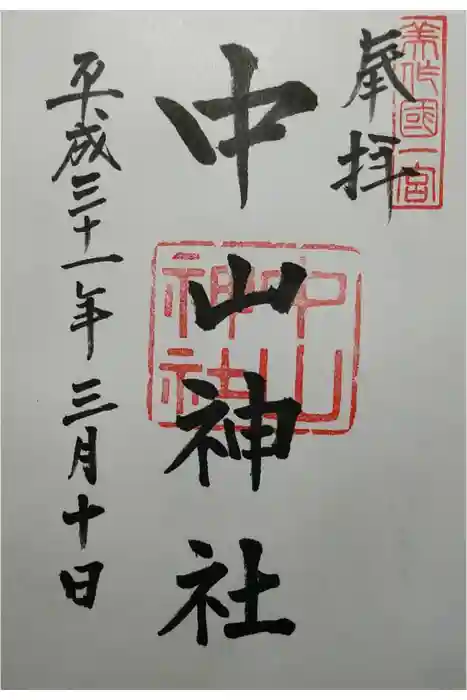 奉拝
美作國一宮
中山神社
中山神社
平成三十一年三月十日